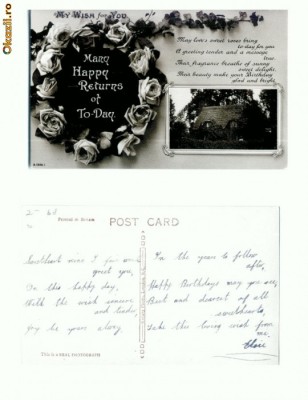 Okazii.ro
MY WISH for YOU.
Many
Happy
Returns
of
To-Day.
May love's sweet roses bring
to-day for you
A greeting tender and a message
true.
Their fragrance breathe of many
sweet delight.
Their beauty make your Birthday
glad and bright.
POST CARD
Sweetheart mine I far
greet you,
On this happy day,
With the wish sincere
and tender,
Joy be yours alway.
THIS IS A REAL PHOTOGRAPH
In the years to follow
after,
Happy Birthdays may you see,
Best and dearest of all
sweethearts,
Take this loving wish from
me.